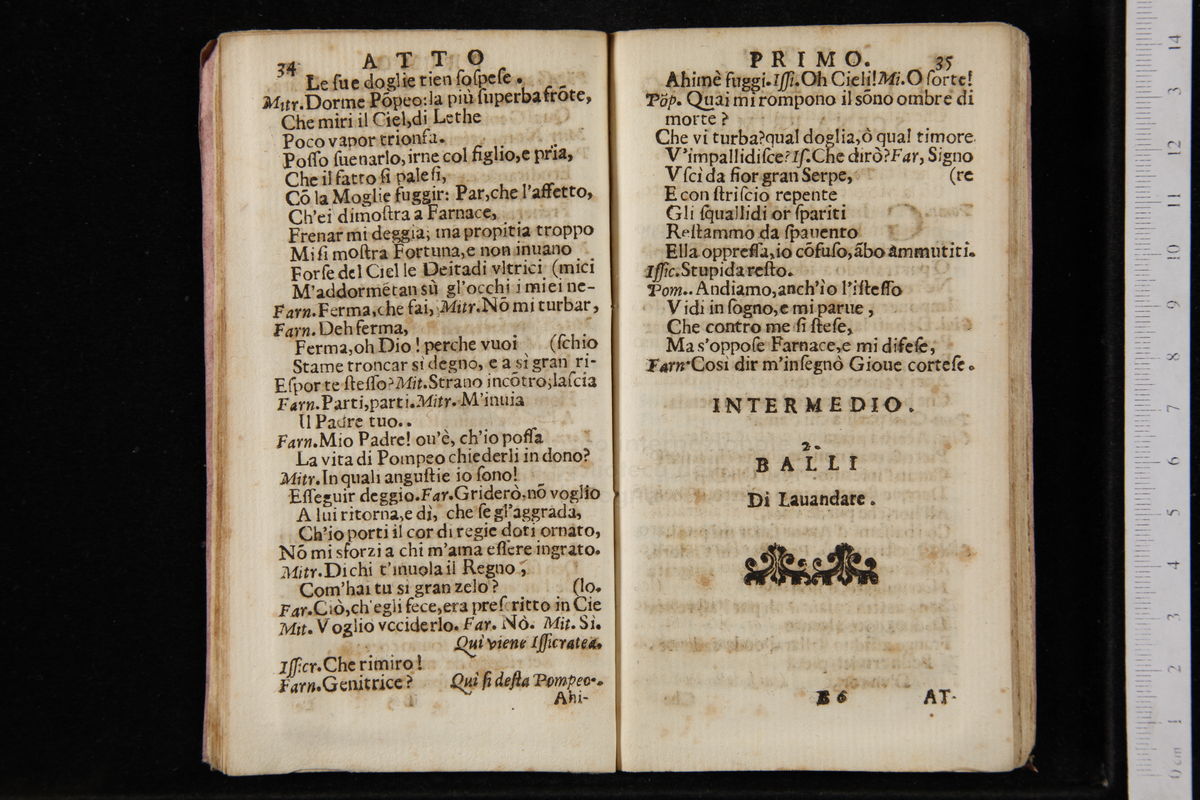 34 ATTO
Le sue doglie tien ſoſpeſe.
Mitr. Dorme Põpeo: la più ſuperba frõte,
Che miri il Ciel, di Lethe
Poco vapor trionfa.
Poſſo ſuenarlo, irne col figlio, e pria,
Che il fatto ſi paleſi,
Cõ la Moglie fuggir: Par, che l'affetto,
Ch'ei dimoſtra a Farnace,
Frenar mi deggia; ma propitia troppo
Mi ſi moſtra Fortuna, e non inuano
Forſe del Ciel le Deitadi vltrici (mici
M'addormẽtan sù gl'occhi i miei ne-
Farn. Ferma, che fai, Mitr. Nõ mi turbar,
Farn. Deh ferma,
Ferma, oh Dio! perche vuoi (ſchio
Stame troncar sì degno, e a sì gran ri-
Eſpor te ſteſſo? Mit. Strano incõtro; laſcia
Farn. Parti, parti. Mitr. M'inuia
Il Padre tuo..
Farn. Mio Padre! ou'è, ch'io poſſa
La vita di Pompeo chiederli in dono?
Mitr. In quali anguſtie io ſono!
Eſſeguir deggio. Far. Griderò, nõ voglio
A lui ritorna, e dì, che ſe gl'aggrada,
Ch'io porti il cor di regie doti ornato,
Nõ mi sforzi a chi m'ama eſſere ingrato.
Mitr. Di chi t'inuola il Regno,
Com'hai tu si gran zelo? (lo.
Far. Ciò, ch'egli fece, era preſcritto in Cie
Mit. Voglio vcciderlo. Far. Nò. Mit. Si.
Qui viene Iſſicratea.
Iſſicr. Che rimiro!
Farn. Genitrice? Qui ſi deſta Pompeo.
Ahi-
PRIMO. 35
Ahimè fuggi. Iſſi. Oh Cieli! Mi. O ſorte!
Põp. Quai mi rompono il sõno ombre di
morte?
Che vi turba? qual doglia, ò qual timore
V'impallidiſce? Iſ. Che dirò? Far, Signo
Vſci da fior gran Serpe, (re
E con ſtriſcio repente
Gli ſquallidi or ſpariti
Reſtammo da ſpauento
Ella oppreſſa, io cõfuſo, ãbo ammutiti.
Iſſic. Stupida reſto.
Pom.. Andiamo, anch'io l'iſteſſo
Vidi in ſogno, e mi parue,
Che contro me ſi ſteſe,
Ma s'oppoſe Farnace, e mi difeſe,
Farn. Cosi dir m'inſegnò Gioue corteſe.
INTERMEDIO.
2.
BALLI
Di Lauandare.
B 6 AT-